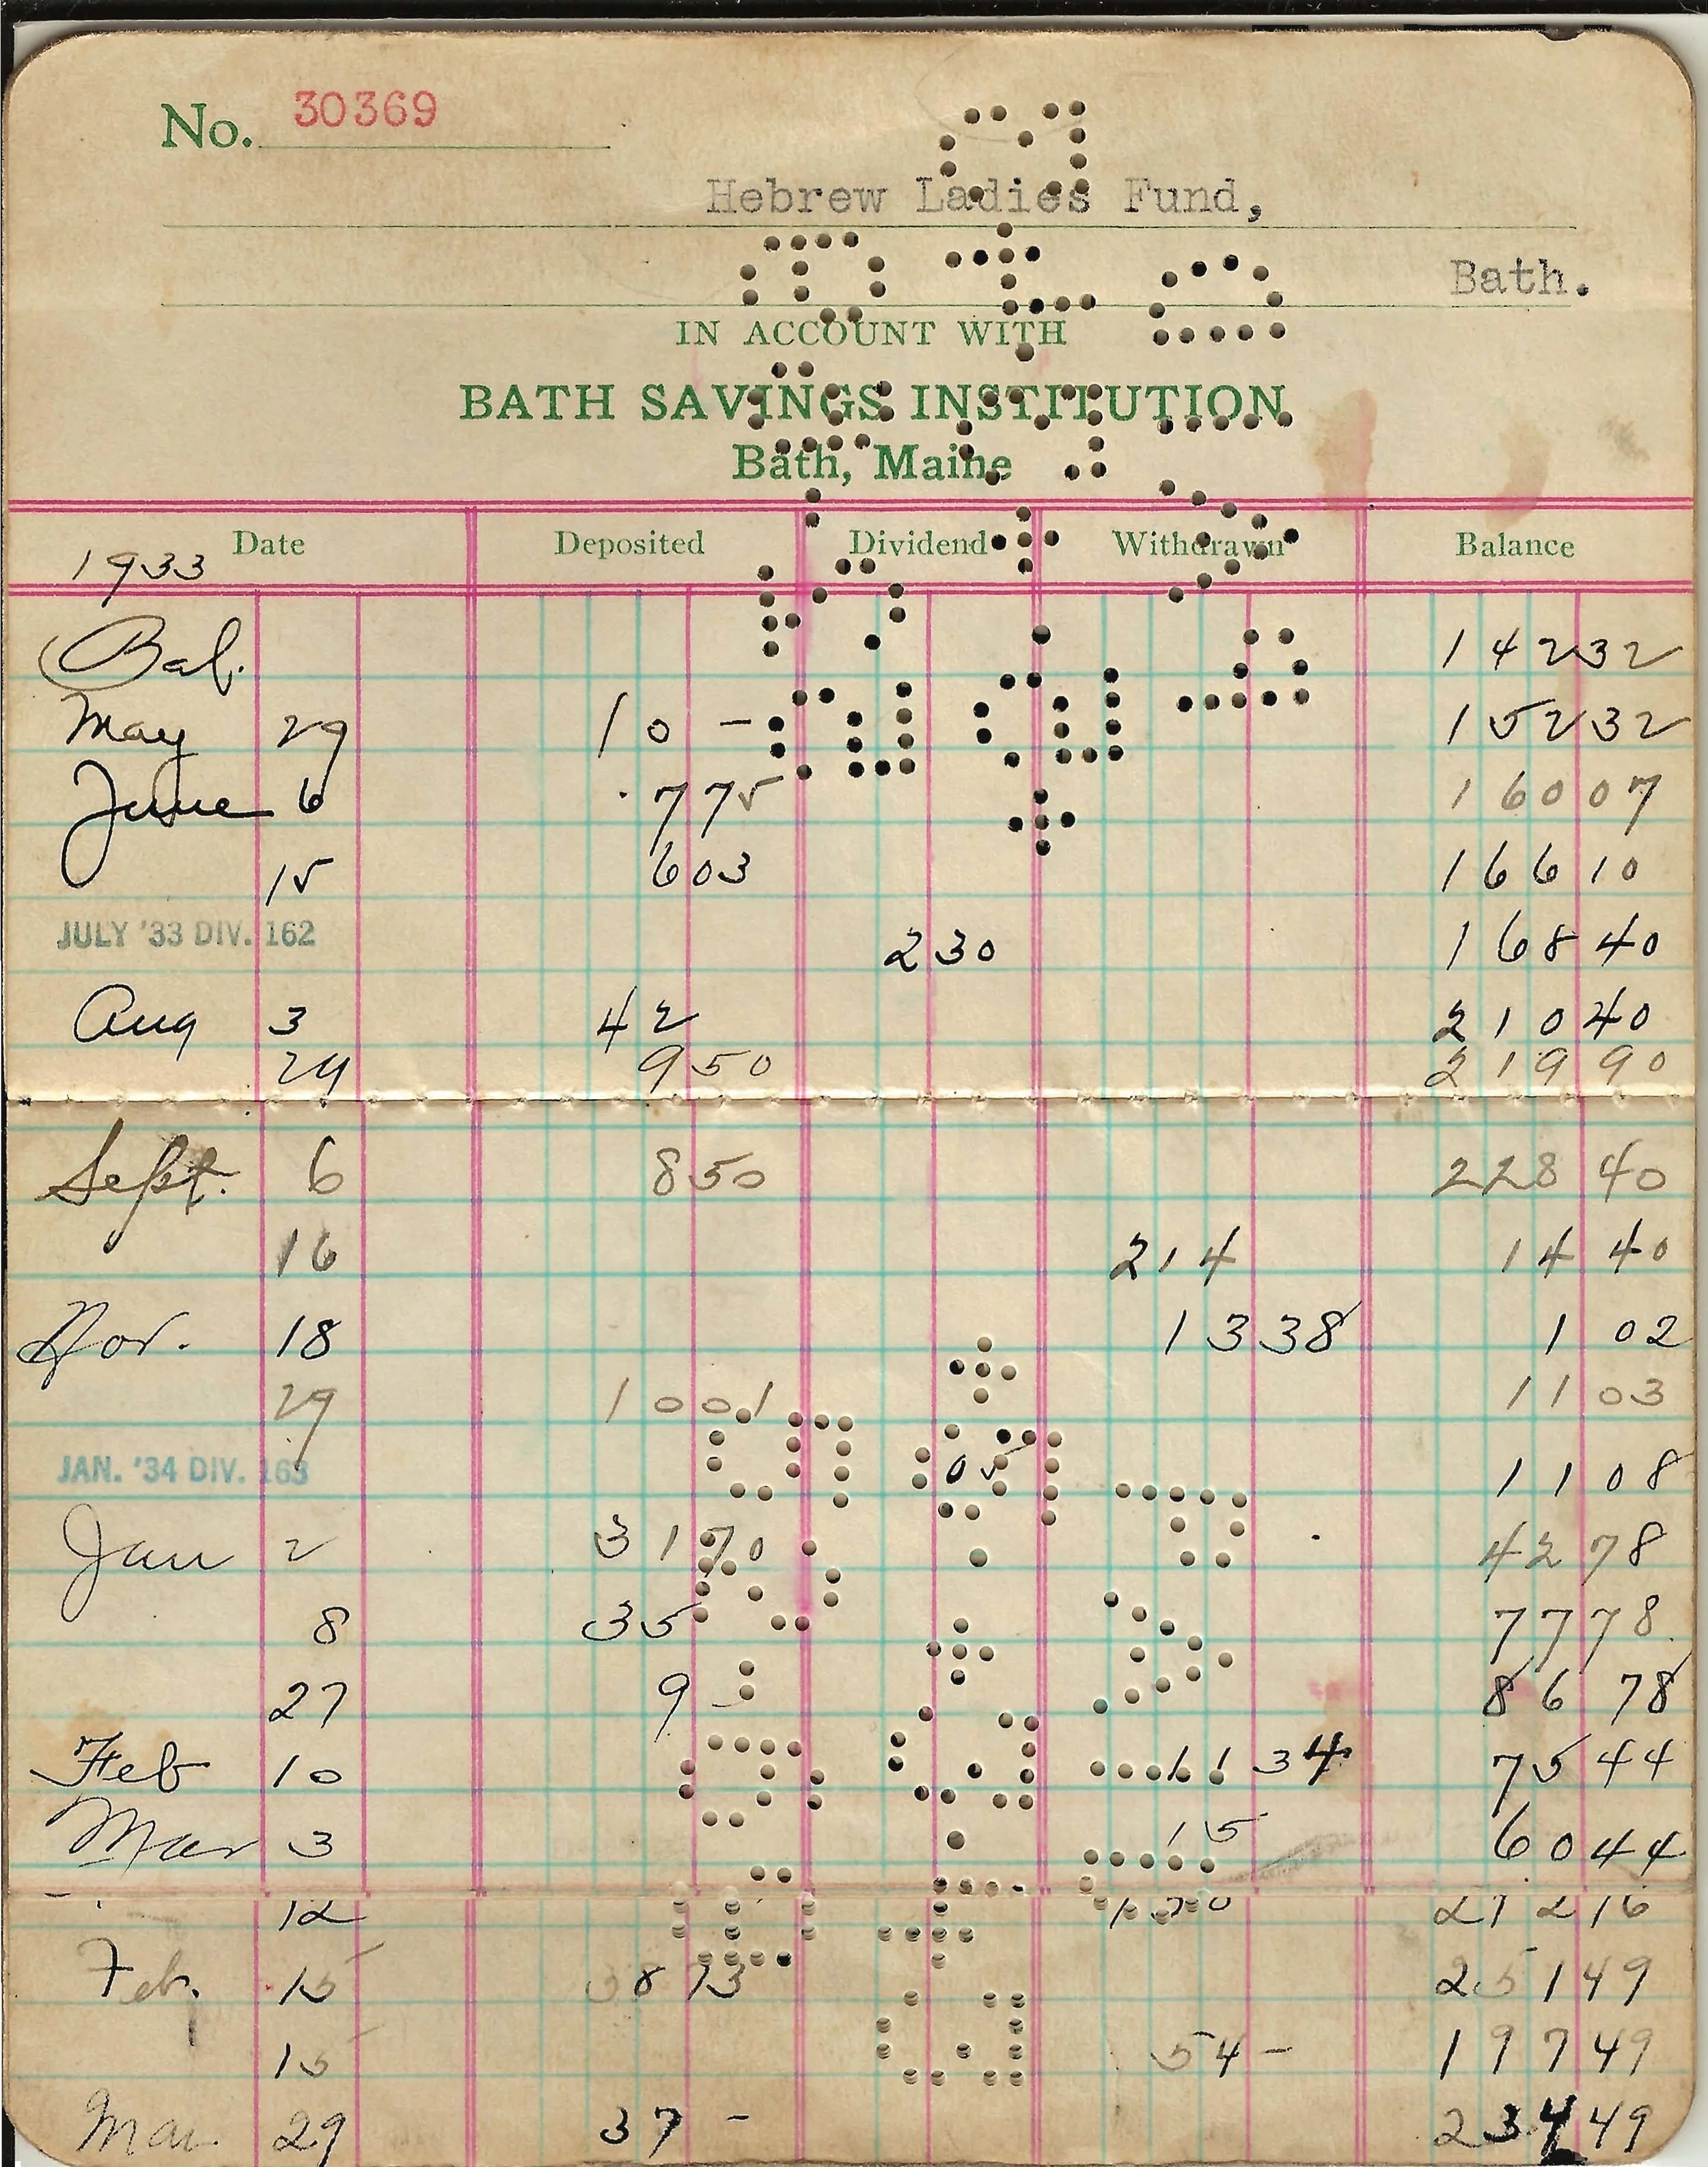 No. 30369
Hebrew Ladies Fund,
Bath.
IN ACCOUNT WITH
BATH SAVINGS INSTITUTION
Bath, Maine
Date Deposited Dividend Withdrawn Balance
1933
Bal. 142 32
May 29 10 - 152 32
June 6 7 75 160 07
15 6 03 166 10
JULY '33 DIV. 162 2 30 168 40
Aug 3 42 210 40
29 9 50 219 90
Sept. 6 8 50 228 40
16 214 14 40
Nov. 18 13 38 1 02
29 10 01 11 03
JAN. '34 DIV. 163 05 11 08
Jan 2 31 70 42 78
8 35 77 78
27 9 - 86 78
Feb 10 11 34 75 44
Mar 3 15 60 44
12 212 16
Feb. 15 38 73 251 49
15 54 - 197 49
Mar 29 37 - 234 49